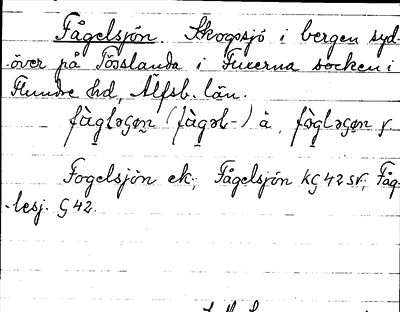 Fågelsjön. Skogssjö i bergen syd-
över på Tösslanda i Fuxerna socken i
Flundre hd, Älfsb. län.
fàgləʂøn (fàgəl-) ä, fògləʂøn y
Fogelsjön ek; Fågelsjön KG 42 SV; Fåg-
lesj. G 42.